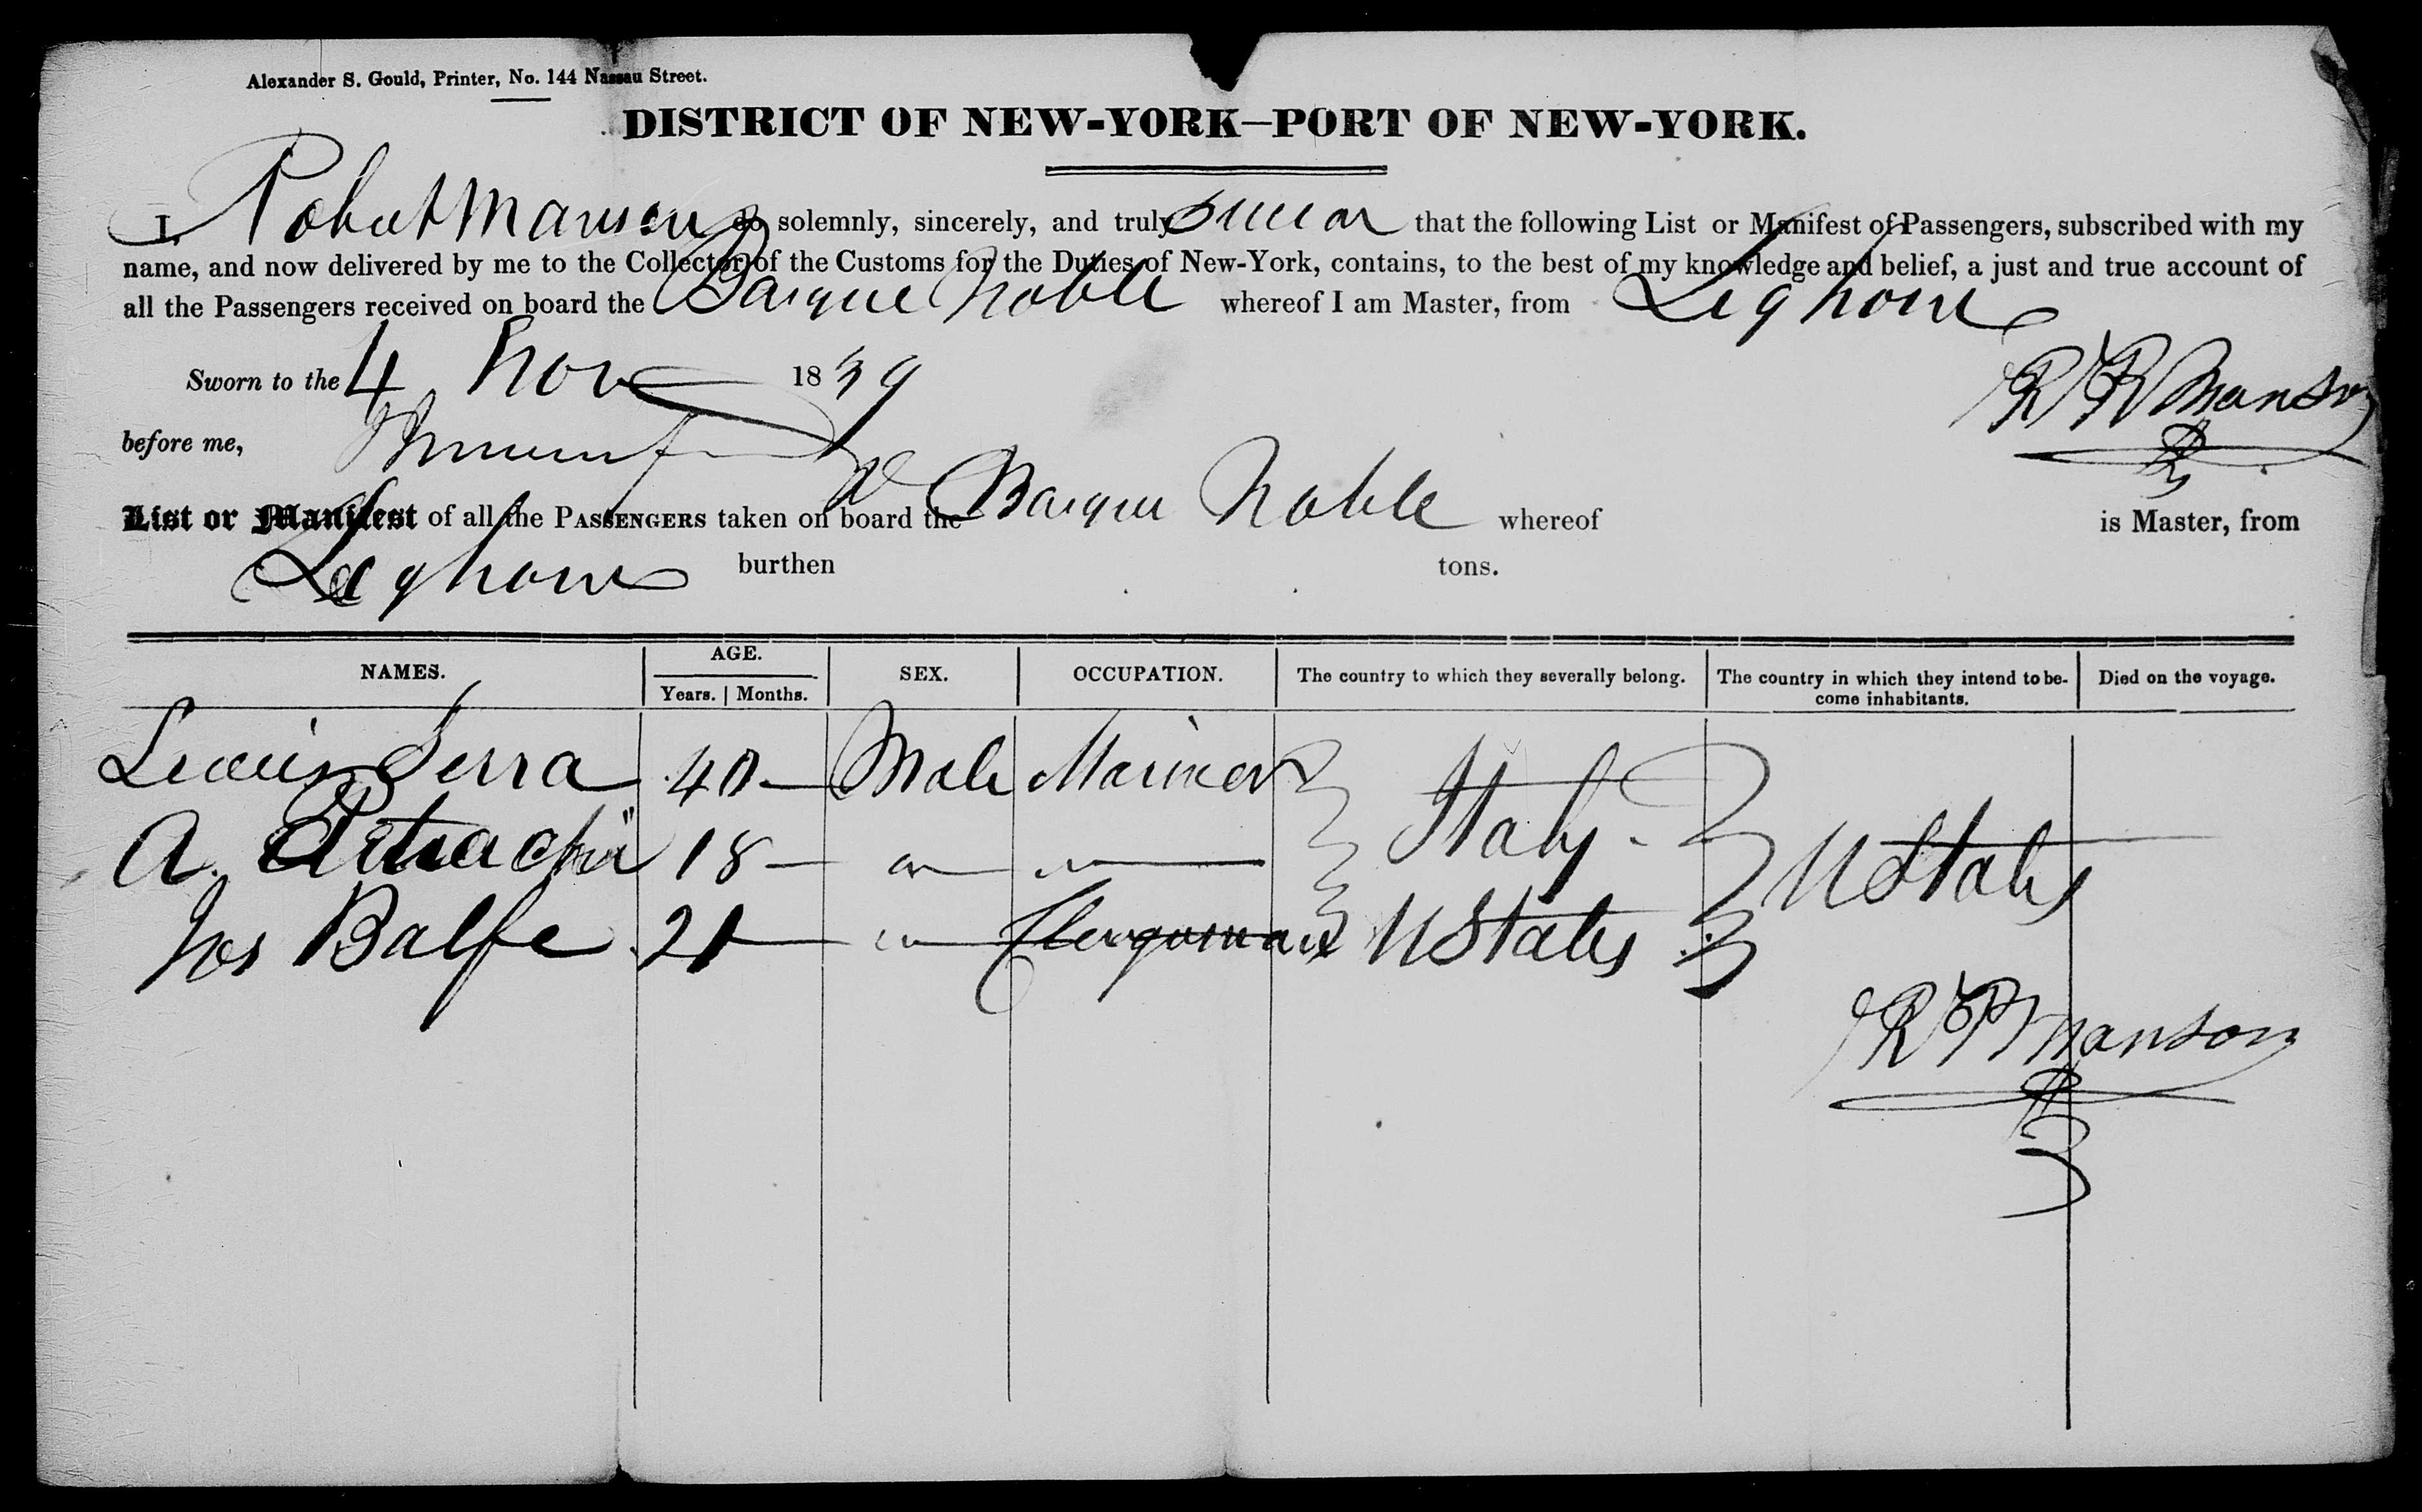 Alexander S. Gould, Printer, No. 144 Nassau Street.
DISTRICT OF NEW-YORK—PORT OF NEW-YORK.
I, Robert Manson do solemnly, sincerely, and truly swear that the following List or Manifest of Passengers, subscribed with my
name, and now delivered by me to the Collector of the Customs for the Duties of New-York, contains, to the best of my knowledge and belief, a just and true account of
all the Passengers received on board the Barque Noble whereof I am Master, from Leghorn
Sworn to the 4 Nov 1839
R P Manson
before me,
List or Manifest of all the PASSENGERS taken on board the Barque Noble whereof is Master, from
Leghorn burthen tons.
NAMES. AGE. SEX. OCCUPATION. The country to which they severally belong. The country in which they intend to be- Died on the voyage.
Years. Months. come inhabitants.
Lewis Serra 40 Male Mariner Italy
A. Petrachi 18 " " U States
Jos Balfe 21 " Clergyman U States
R P Manson
3